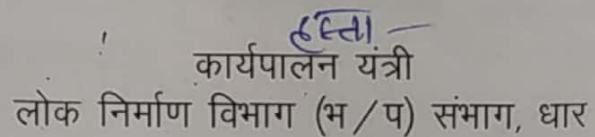 हस्ता —
कार्यपालन यंत्री
लोक निर्माण विभाग (भ/प) संभाग, धार